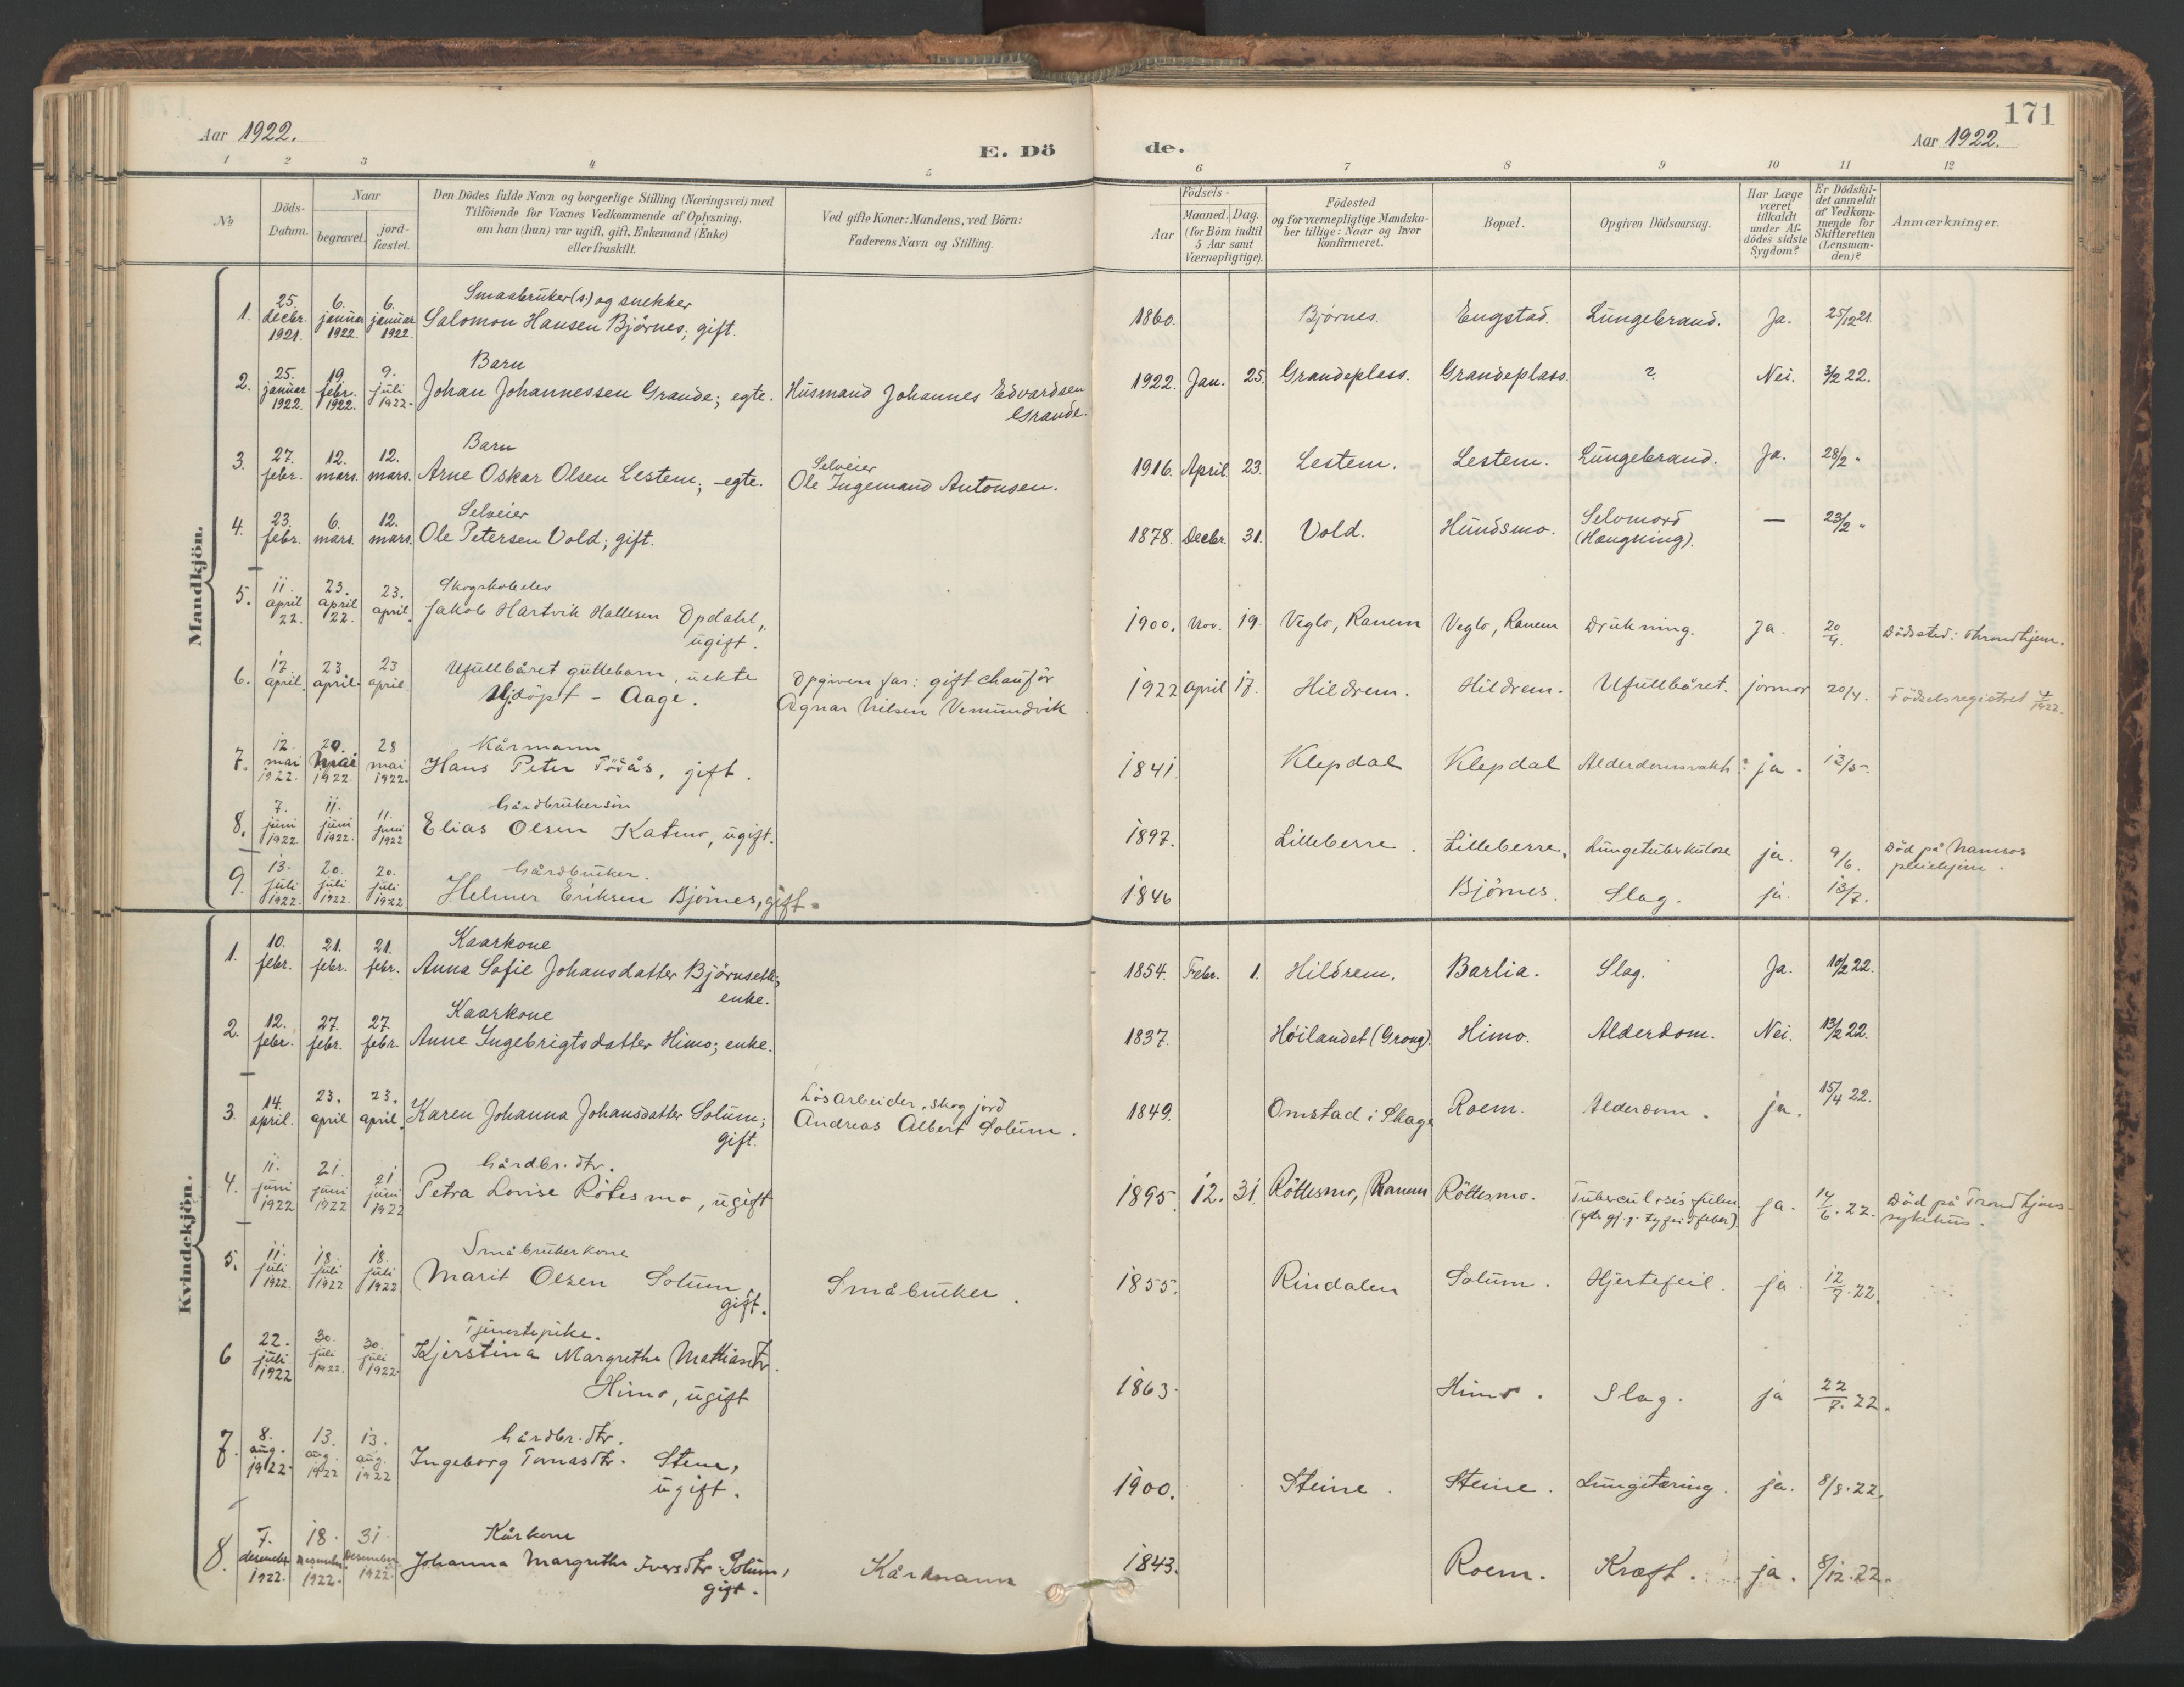 171
Aar 1922.
E. Dö
de.
Aar 1922.
1 2 3 4 5 6 7 8 9 10 11 12
No
Döds-
Datum.
Naar
begravet.
jord-
fæstet.
Den Dödes fulde Navn og borgerlige Stilling (Næringsvei) med
Tilföiende for Voxnes Vedkommende af Oplysning.
om han (hun) var ugift, gift, Enkemand (Enke)
eller fraskilt.
Ved gifte Koner: Mandens, ved Börn:
Faderens Navn og Stilling.
Födsels-
Aar
Maaned. Dag.
(for Börn indtil
5 Aar samt
Værnepligtige).
Födested
og for værnepligtige Mandska-
ber tillige: Naar og hvor
Konfirmeret.
Bopæl.
Opgiven Dödsaarsag.
Har Læge
været
tilkaldt
under Af-
dödes sidste
Sygdom?
Er Dödsfal-
det anmeldt
af Vedkom-
mende for
Skifteretten
(Lensman-
den)?
Anmærkninger.
Mandkjön.
1. 25. decbr. 1921. 6. januar 1922. 6. januar 1922. Smaabruker (s.) og snekker
Salomon Hansen Björnes, gift. 1860. Björnes. Engstad. Lungebrand. Ja. 25/12 21.
2. 25. januar 1922. 19. febr. 1922. 9. juli 1922. Barn
Johan Johannessen Grande; egte. Husmand Johannes Edvardsen
Grande. 1922. Jan. 25. Grandeplass. Grandeplass. ? Nei. 3/2 22.
3. 27. febr. 12. mars. 12. mars. Barn
Arne Oskar Olsen Lestem; egte. Selveier
Ole Ingemand Antonsen. 1916. April 23. Lestem. Lestem. Lungebrand. Ja. 28/2 "
4. 23. febr. 6. mars. 12. mars. Selveier
Ole Petersen Vold; gift. 1878. Decbr. 31. Vold. Hundsmo. Selvmord
(Hængning). — 23/2 "
5. 11. april 22. 23. april 22. 23. april. Skogskoleelev
Jakob Hartvik Hallesen Opdahl,
ugift. 1900. Nov. 19. Veglo, Ranem Veglo, Ranem Drukning. Ja. 20/4. Dödssted: Throndhjem.
6. 17. april. 23. april. 23 april. Ufullbåret guttebarn, uekte
Hjdöpt - Aage. Opgiven far: gift chauför
Agnar Nilsen Vemundvik 1922 april 17. Hildrem. Hildrem. Ufullbåret. jormor 20/4. Födselsregistret 4/1922.
7. 12. mai 1922. 20. mai 1922. 28 mai 1922. Kårmann
Hans Peter Tödås, gift. 1841. Klepdal Klepdal ja. 13/5.
8. 7. juni 1922. 11. juni 1922. 11. juni 1922 Gårdbrukersön
Elias Olsen Katmo, ugift. 1897. Lilleberre. Lilleberre, Lungetuberkulose ja. 9/6. Död på Namsos
pleiehjem.
9. 13. juli 1922. 20. juli 1922. 20. juli 1922 Gårdbruker.
Helmer Eriksen Björnes, gift. 1846 Björnes. Slag. ja. 13/7.
Kvindekjön.
1. 10. febr. 21. febr. 21. febr. Kaarkone
Anna Sofie Johansdatter Björnsetli;
enke. 1854. Febr. 1. Hildrem. Barlia. Slag. Ja. 10/2 22.
2. 12. febr. 27. febr. 27. febr. Kaarkone
Anne Ingebrigtsdatter Himo; enke. 1837. Höilandet (Grong). Himo. Alderdom. Nei. 13/2 22.
3. 14. april. 23. april 23. april. Karen Johanna Johansdatter Solum;
gift. Lösarbeider, skog jord
Andreas Albert Solum. 1849. Omstad i Skage Roem. Alderdom. ja. 15/4 22.
4. 11. juni 1922 21. juni 1922 21 juni 1922 Gårdbr. dtr.
Petra Lovise Rötesmo, ugift 1895. 12. 31. Röttesmo, Ranem Röttesmo. Tuberculosis pulm. ja. 14/6. 22. Död på Trondhjems
sykehus.
5. 11. juli 1922. 18. juli 1922 18. juli 1922 Småbrukerkone
Marit Olsen Solum
gift. Småbruker. 1855. Rindalen Solum. Hjertefeil. ja. 12/7. 22.
6 22. juli 1922 30. juli 1922. 30. juli 1922. Tjenestepike.
Kjerstina Margrethe Mattiasdtr.
Himo, ugift 1863. Himo. Slag. ja 22/7. 22.
7. 8. aug. 1922. 13. aug. 1922 13. aug. 1922 Gårdbr. dtr.
Ingeborg Tomasdtr. Stene,
ugift. 1900. Steine. Steine. Lungetæring. ja. 8/8. 22.
8. 7. desember 1922. 18. Desember 1922. 31. Desember 1922. Kårkone
Johanna Margrethe Iversdtr. Solum,
gift. Kårmann 1843. Roem. Kræft. ja. 8/12. 22.